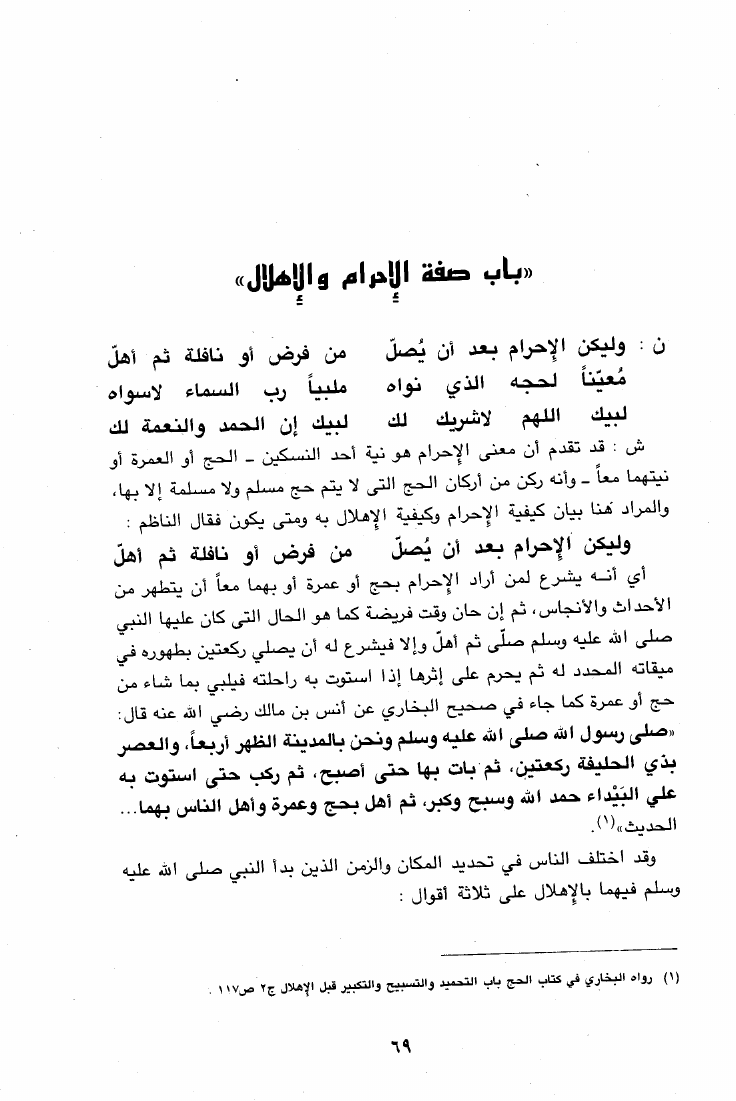 «باب صفة الإحرام والإهلال»
ن : وليكن الإحرام بعد أن يُصلّ من فرض أو نافلة ثم أهلّ
مُعيّناً لحجه الذي نواه ملبياً رب السماء لاسواه
لبيك اللهم لاشريك لك لبيك إن الحمد والنعمة لك
ش : قد تقدم أن معنى الإحرام هو نية أحد النسكين - الحج أو العمرة أو
نيتهما معاً - وأنه ركن من أركان الحج التى لا يتم حج مسلم ولا مسلمة إلا بها،
والمراد هنا بيان كيفية الإحرام وكيفية الإهلال به ومتى يكون فقال الناظم :
وليكن الإحرام بعد أن يُصلّ من فرض أو نافلة ثم أهلّ
أي أنه يشرع لمن أراد الإحرام بحج أو عمرة أو بهما معاً أن يتطهر من
الأحداث والأنجاس، ثم إن حان وقت فريضة كما هو الحال التى كان عليها النبي
صلى الله عليه وسلم صلّى ثم أهلّ وإلا فيشرع له أن يصلي ركعتين بطهوره في
ميقاته المحدد له ثم يحرم على إثرها إذا استوت به راحلته فيلبي بما شاء من
حج أو عمرة كما جاء في صحيح البخاري عن أنس بن مالك رضي الله عنه قال:
«صلى رسول الله صلى الله عليه وسلم ونحن بالمدينة الظهر أربعاً، والعصر
بذي الحليفة ركعتين، ثم بات بها حتى أصبح، ثم ركب حتى استوت به
علي البَيْداء حمد الله وسبح وكبر، ثم أهل بحج وعمرة وأهل الناس بهما...
الحديث»(١).
وقد اختلف الناس في تحديد المكان والزمن الذين بدأ النبي صلى الله عليه
وسلم فيهما بالإهلال على ثلاثة أقوال :
(١) رواه البخاري في كتاب الحج باب التحميد والتسبيح والتكبير قبل الإهلال ج٢ ص١١٧ .
٦٩